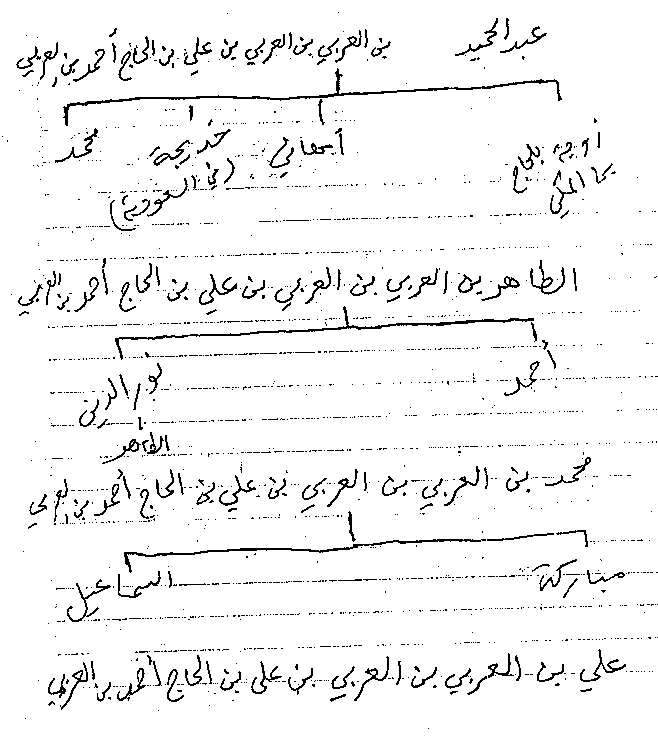 عبد الحميد بن العربي بن العربي بن علي بن الحاج أحمد بن العربي
زوجة بلحاج أسماني خديجة محمد
بحا المكي (في السعودية)
الطاهر بن العربي بن العربي بن علي بن الحاج أحمد بن العربي
أحمد نور الدين
الطاهر
محمد بن العربي بن العربي بن علي بن الحاج أحمد بن العربي
مباركة اسماعيل
علي بن العربي بن العربي بن علي بن الحاج أحمد بن العربي